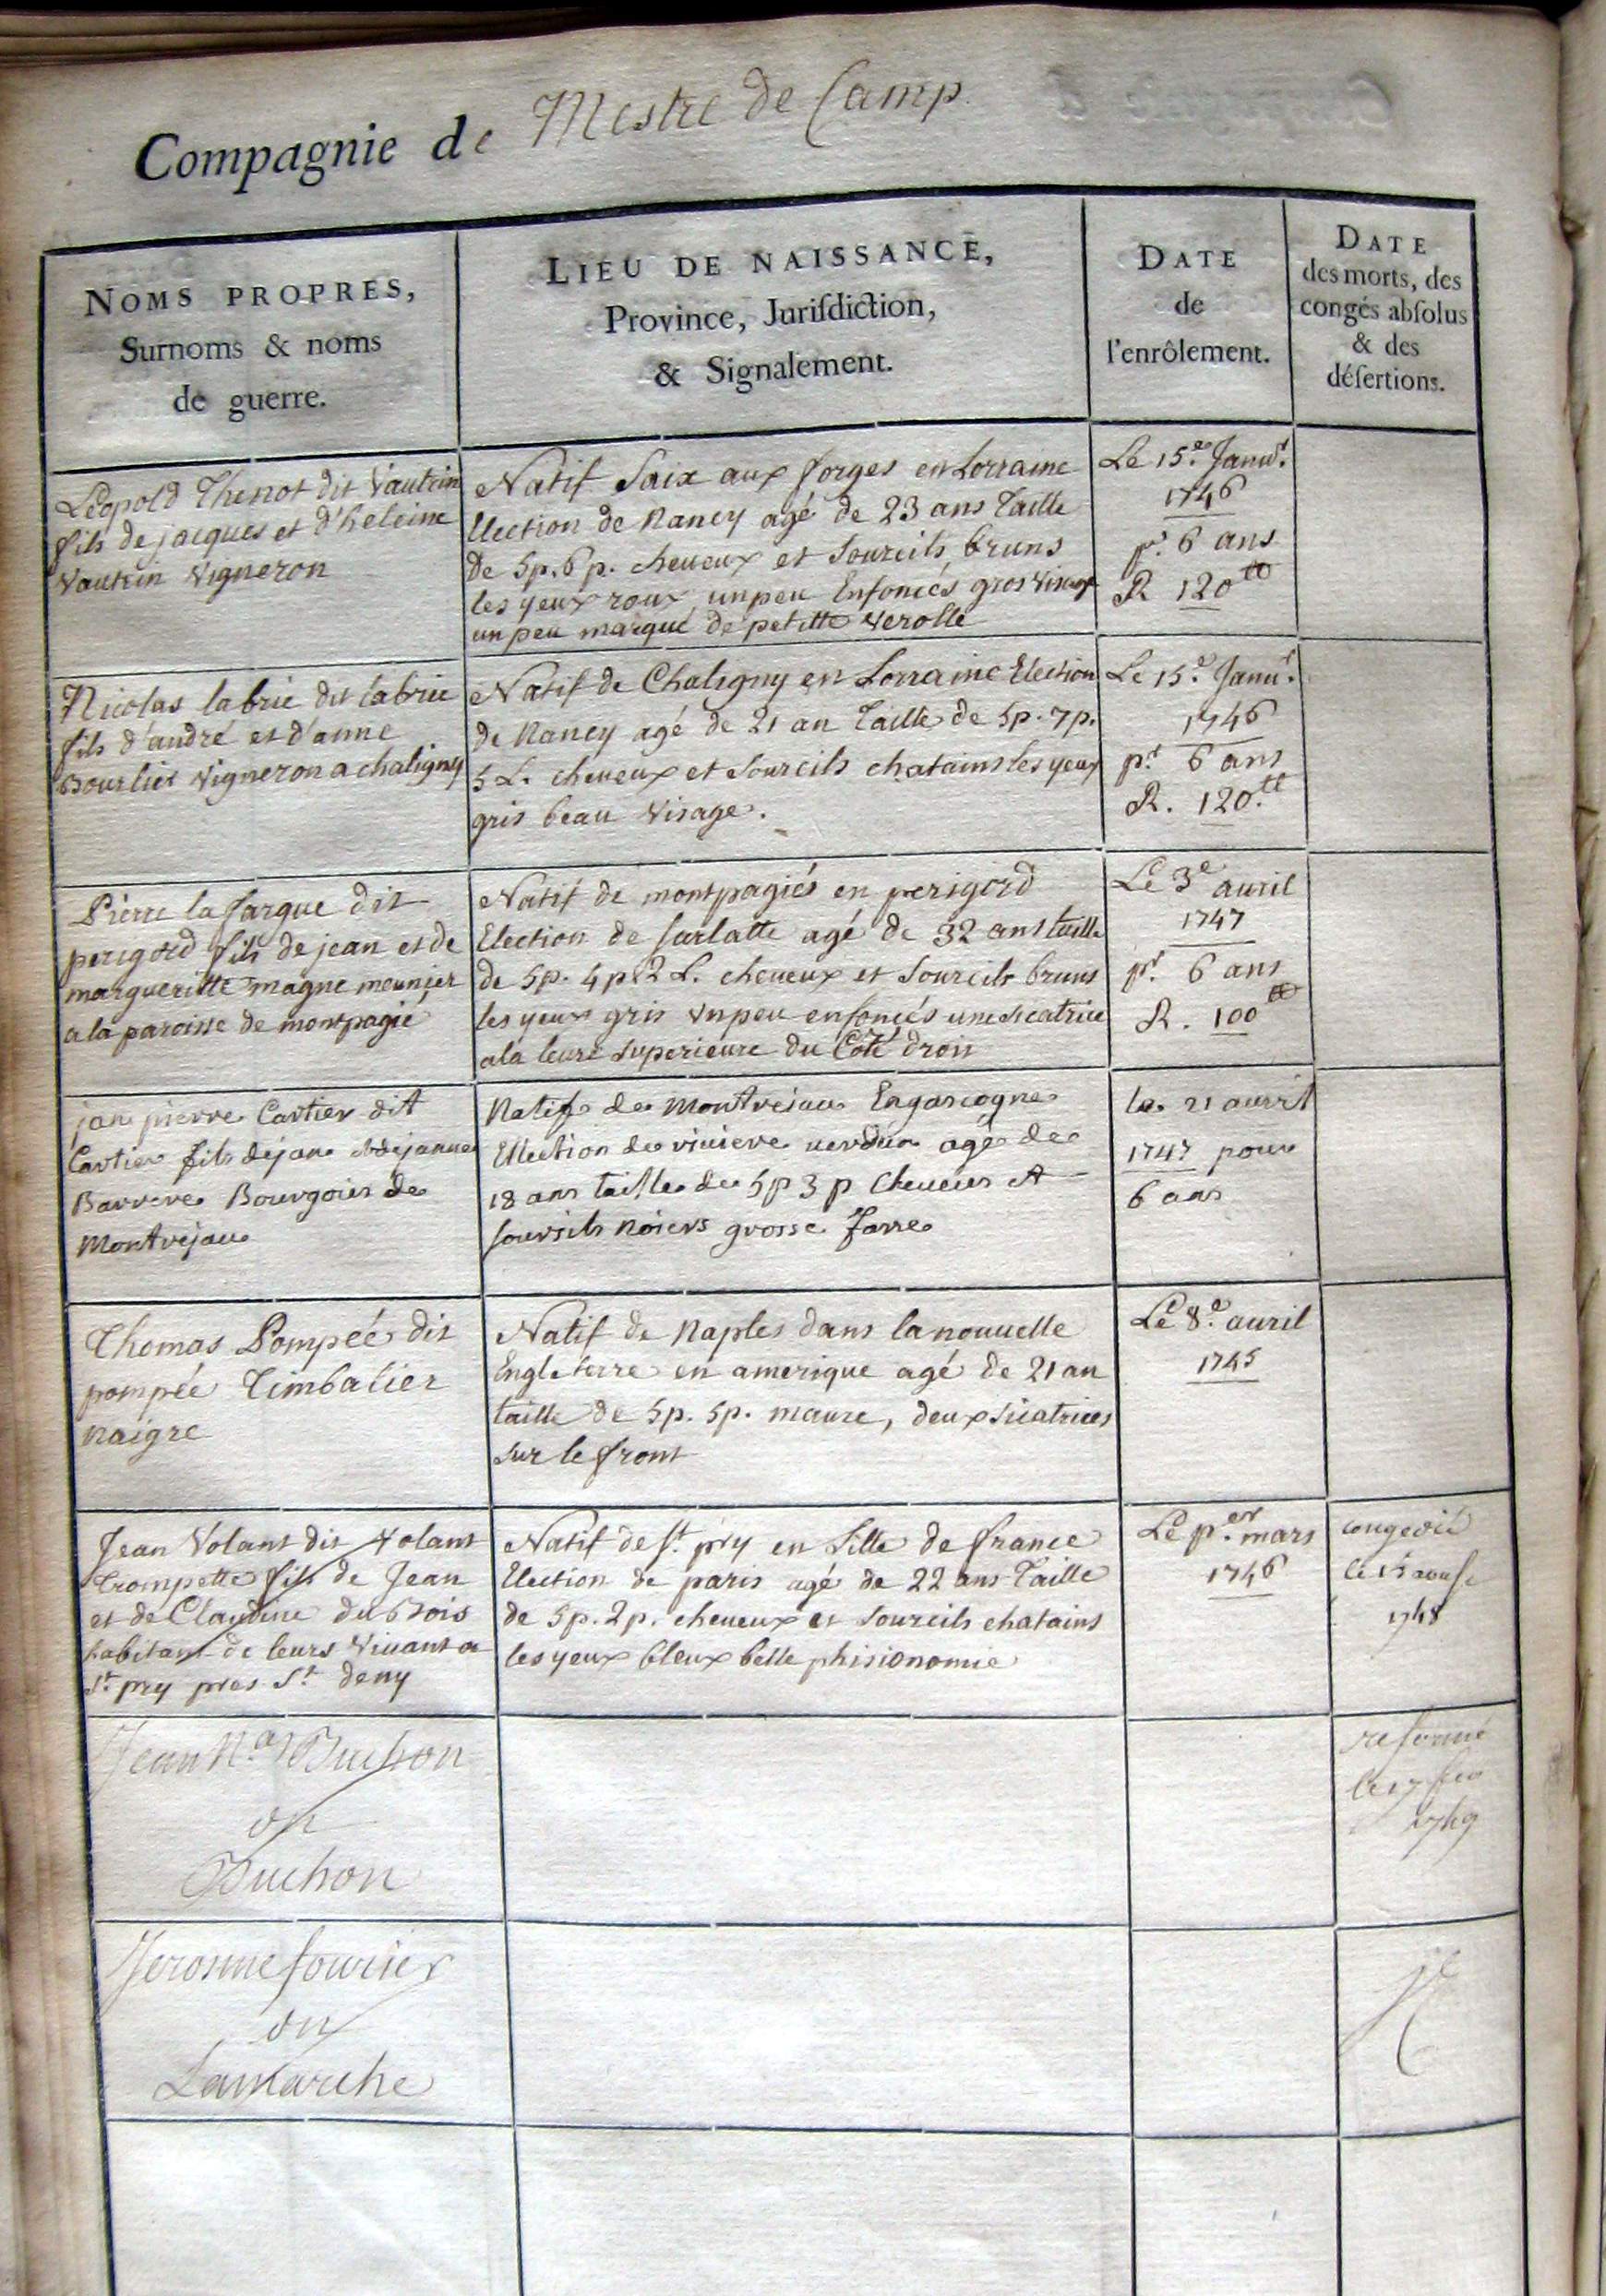 Compagnie de Mestre de Camp.
NOMS PROPRES,
Surnoms & noms
de guerre.
LIEU DE NAISSANCE,
Province, Jurisdiction,
& Signalement.
DATE
de
l'enrôlement.
DATE
des morts, des
congés absolus
& des
désertions.
Léopold Thenot dit Vautrin
fils de jacques et d'heleine
Vautrin Vigneron
Natif Saix aux forges en Lorraine
Election de Nancy agé de 23 ans Taille
de 5p. 6 p. cheueux et Sourcils bruns
les yeux roux un peu Enfoncés gros Visage
un peu marqué de petitte Verolle
Le 15.e Janvr.
1746
pr. 6 ans
R 120tt
Nicolas labrie dit labrie
fils d'andré et d'anne
Bourlier Vigneron a chaligny
Natif de Chaligny en Lorraine Election
de Nancy agé de 21 an Taille de 5p. 7p.
5 L. cheueux et Sourcils chatains les yeux
gris beau Visage.
Le 15.e Janvr.
1746
pr. 6 ans
R. 120.tt
Pierre la fargue dit
perigord fils de jean et de
margueritte magne meunier
a la paroisse de montpagie
Natif de montpagiés en perigord
Election de sarlatte agé de 32 ans taille
de 5p. 4p 2 L. cheueux et Sourcils bruns
les yeux gris Un peu enfoncés une sicatrice
ala leure Superieure du Coté droit
Le 3e auril
1747
pr. 6 ans
R. 100tt
jan pierre Cartier dit
Cartier fils de jane et de janne
Barrere Bourgois de
Montrejau
Natif de Montrejau En gascogne
Ellection de riuiere uerdun agé de
18 ans taille de 5p 3 p Cheueus et
soursils noiers grosse
le 21 auril
1747 pour
6 ans
Thomas Pompée dit
pompée Timbalier
naigre
Natif de Naples dans la nouuelle
Engleterre en amerique agé de 21 an
taille de 5p. 5p. maure, deux sicatrices
sur le front
Le 8.e auril
1745
Jean Volant dit Volant
Trompette fils de Jean
et de Claudine du Bois
habitant de leurs Viuant a
St. pry pres St. deny
Natif de St. pry en Lille de france
Election de paris agé de 22 ans Taille
de 5p. 2p. cheueux et Sourcils chatains
les yeux bleux belle phisionomie
Le p.er mars
1746
congedié
le 15 aoust
1748
Jean Nas Buchon
ou
Buchon
reformé
le 17 feu
1749
Jerosme fourier
ou
Lamarche